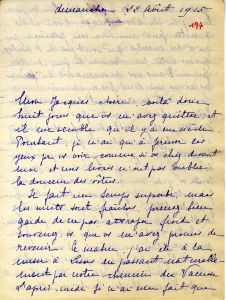 dimanche 22 Août 1915
197
Mon Jacques chéri, voilà donc
huit jours que vous m'avez quittée et
il me semble qu'il y a un siècle
Pourtant, je n'ai qu'à fermer les
yeux pour vous voir comme si vous étiez devant
moi, et mes lèvres n'ont pas oublié
la douceur des vôtres.
Il fait un temps superbe, mais
les nuits sont fraîches prenez bien
garde de ne pas attraper froid et
souvenez vous que vous m'avez promis de
revenir. Ce matin j'ai été à la
messe à en passant naturellement
par votre chemin du
L'après-midi je n'ai rien fait que